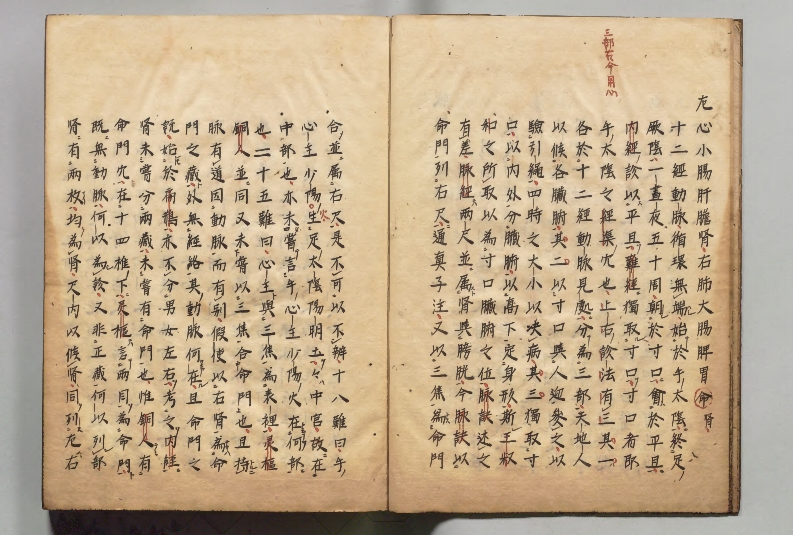 三部若今用心
左心小腸肝膽腎右肺大腸脾胃命
十二經動脉循環無端始於手太陰終足
厥陰一晝夜五十周朝於寸口會於平旦
内經診以平旦難經獨取寸口寸口者即
手太陰之經渠穴也上古診法有三其一
各於十二經動脉見處分為三部天地人
以候各臟腑其二以寸口與人迎參之以
驗引繩四時之大小以决病其三獨取寸
口以内外分臟腑以高下定身形斯王叔
和之所取以為寸口臟腑之位脉訣述之
有差脉經兩尺並属腎與膀胱今脉訣以
命門列右尺通真子注又以三焦為命門
合並属右尺是不可以不辨十八難曰手
心主少陽火生足太陰陽明土々中宮故在
中部也亦未嘗言手心主少陽火在何部
也二十五難曰心主與三焦為表裡
銅人並同又未嘗以三焦合命門也且持
脉有道因動脉而有别假使以右腎為命
門之藏外無經絡其動脉何在且命門之
説始於扁鵲亦不分男女左右考之内經
腎未嘗分兩藏未嘗有命門也惟銅人有
命門穴在十四椎下是樞言兩同為命門
既無動脉何以為診又非正藏何以列部
腎有兩枚均為腎尺内以候腎同列左右